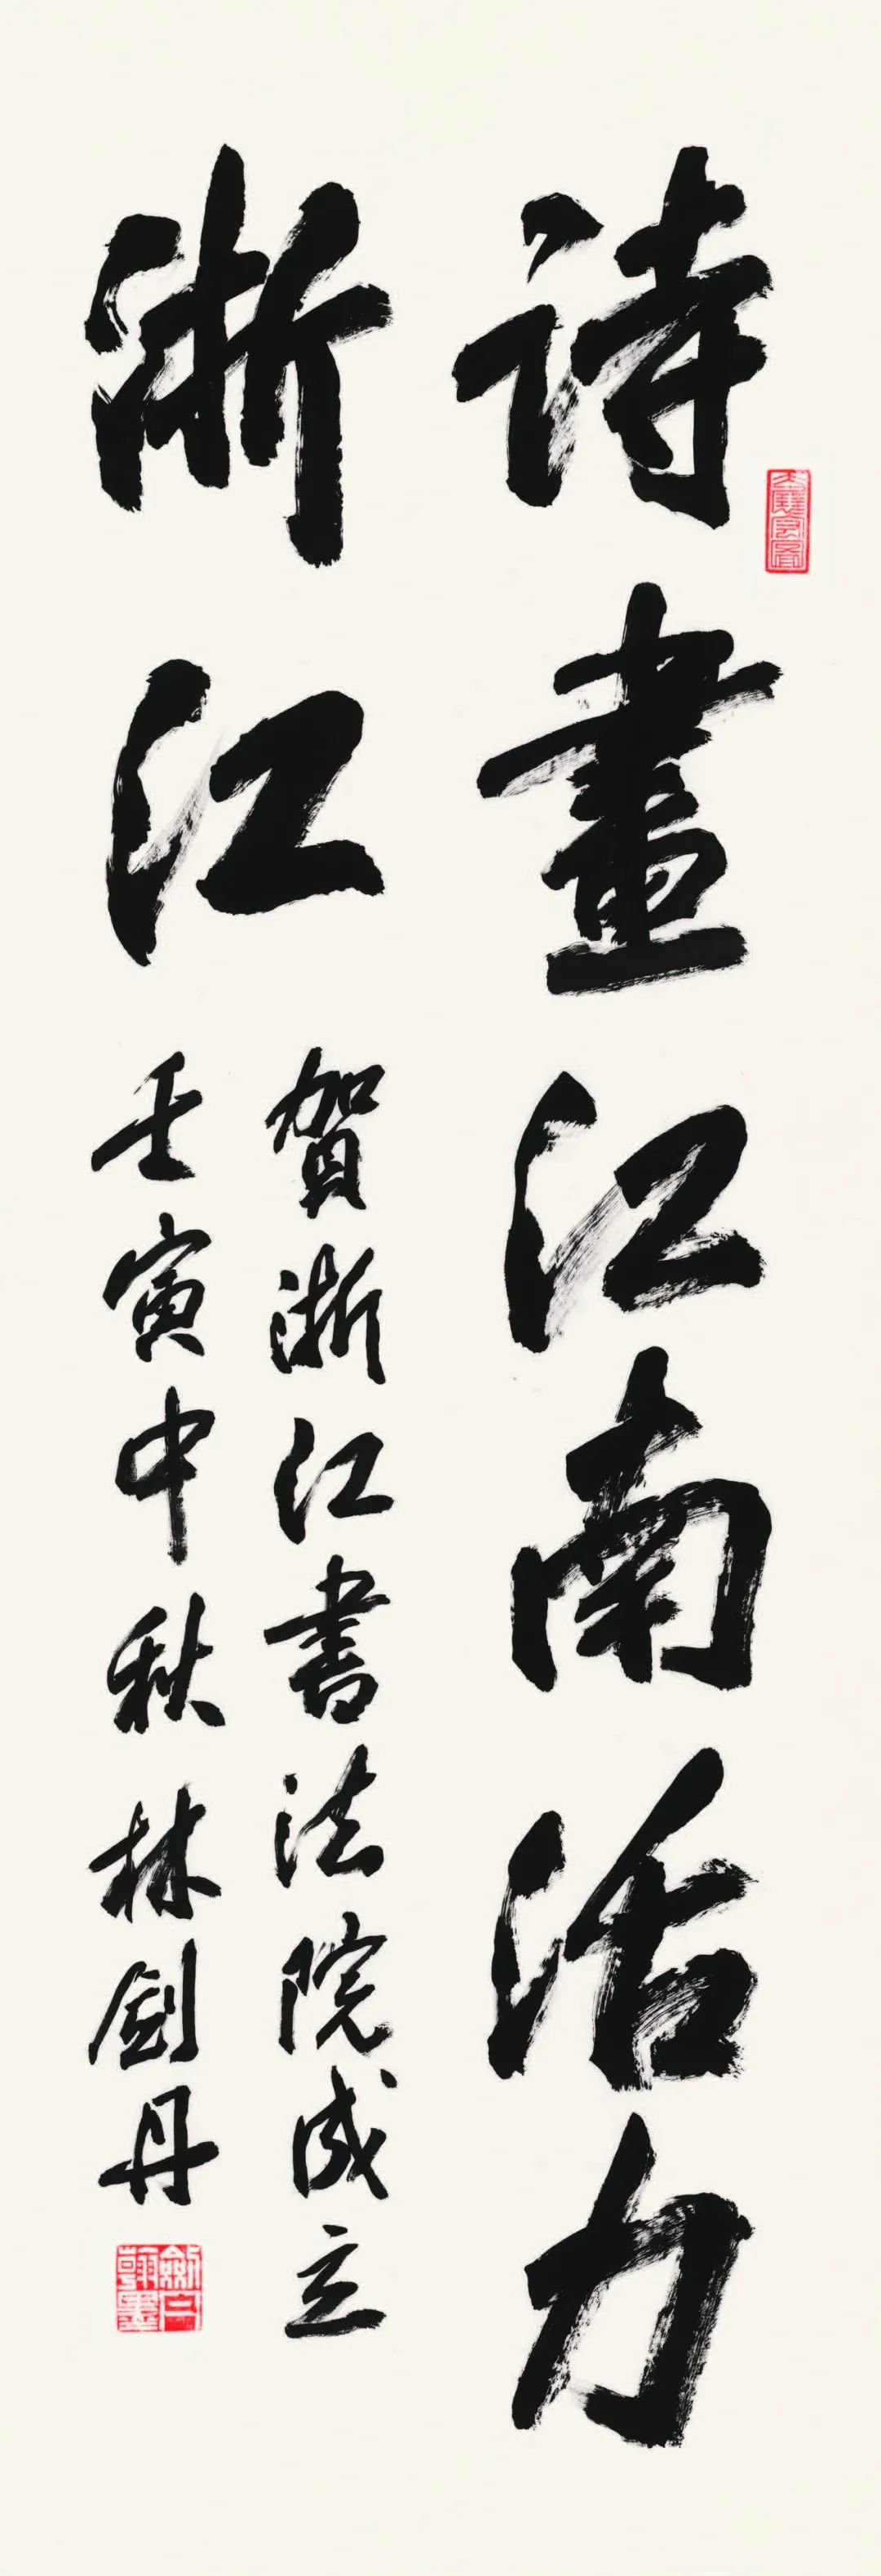 詩畫江南活力
浙江
賀浙江書法院成立
壬寅中秋林劍丹